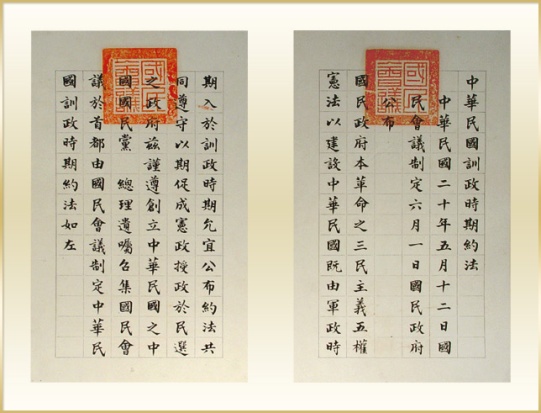 中華民國訓政時期約法
中華民國二十年五月十二日國
民會議制定六月一日國民政府
公布
國民政府本革命之三民主義五權
憲法以建設中華民國既由軍政時
期入於訓政時期允宜公布約法共
同遵守以期促成憲政授政於民選
之政府茲謹遵創立中華民國之中
國國民黨　總理遺囑召集國民會
議於首都由國民會議制定中華民
國訓政時期約法如左